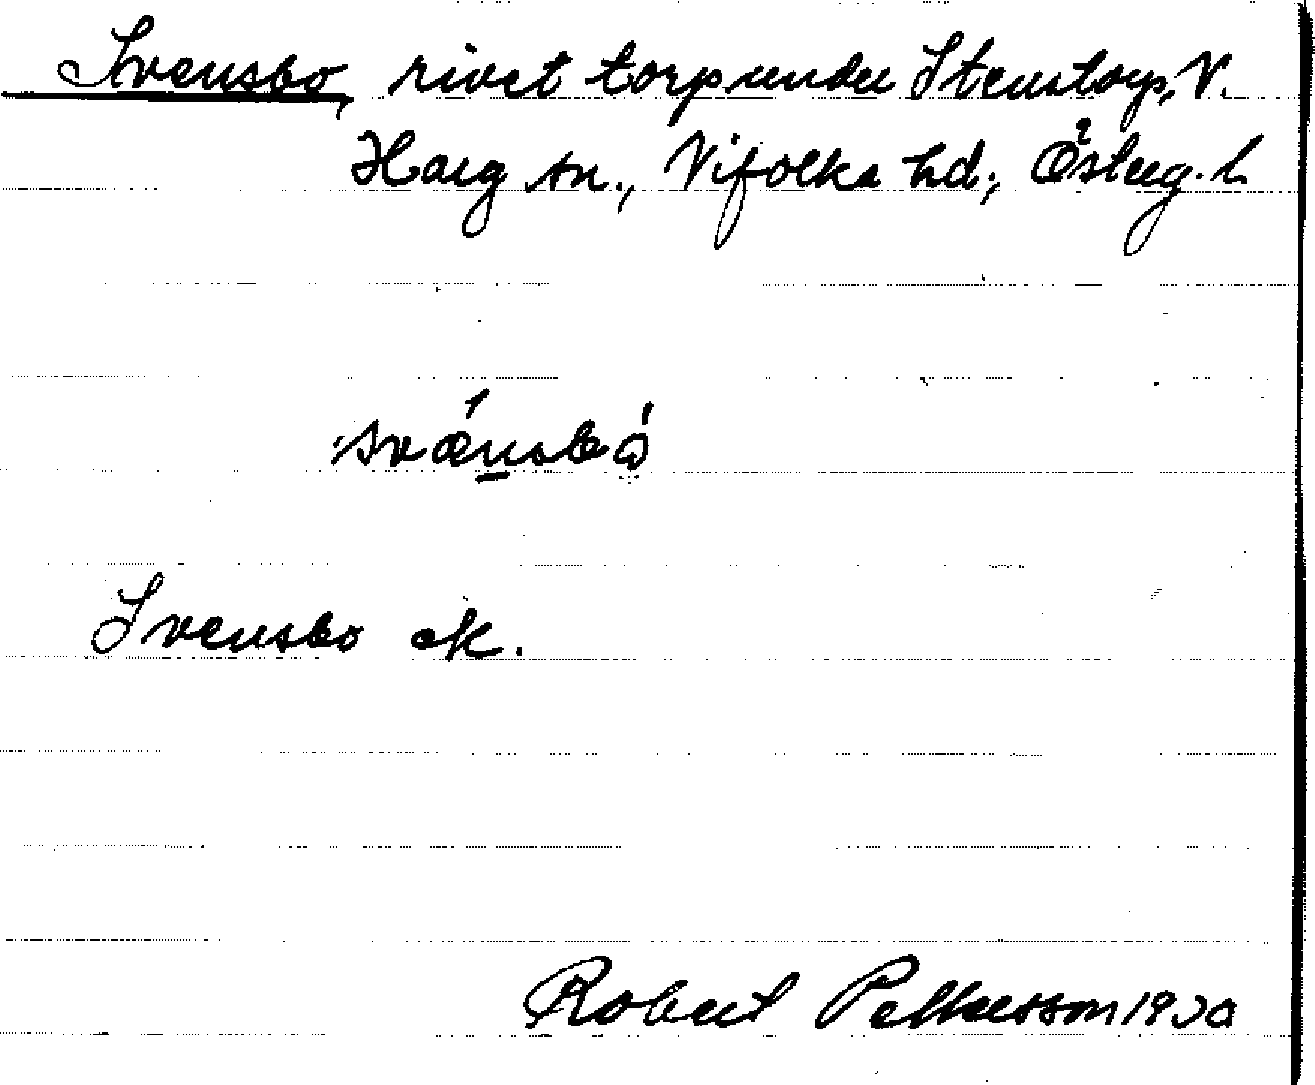 Svensbo, rivet torp under Stenstorp, V.
Harg sn., Vifolka hd., Österg. l.
svǽnsbó
Svensbo ek.
Robert Pettersson 1930